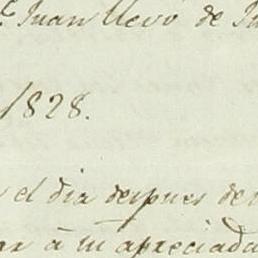 Juan llevó de
1828.
el dia despues de
à tu apreciada